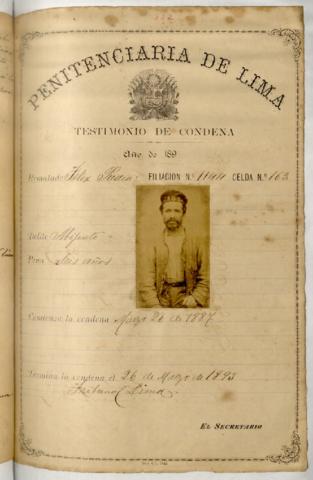 PENITENCIARIA DE LIMA
TESTIMONIO DE CONDENA
Año de 189
Rematado Felix FILIACION N.º 1144 CELDA N.º 163
Delito Abijeato
Pena Seis años
Comienza la condena Mayo 26 de 1887
Termina la condena el 26 de Mayo de 1893
Tribunal Lima
EL SECRETARIO